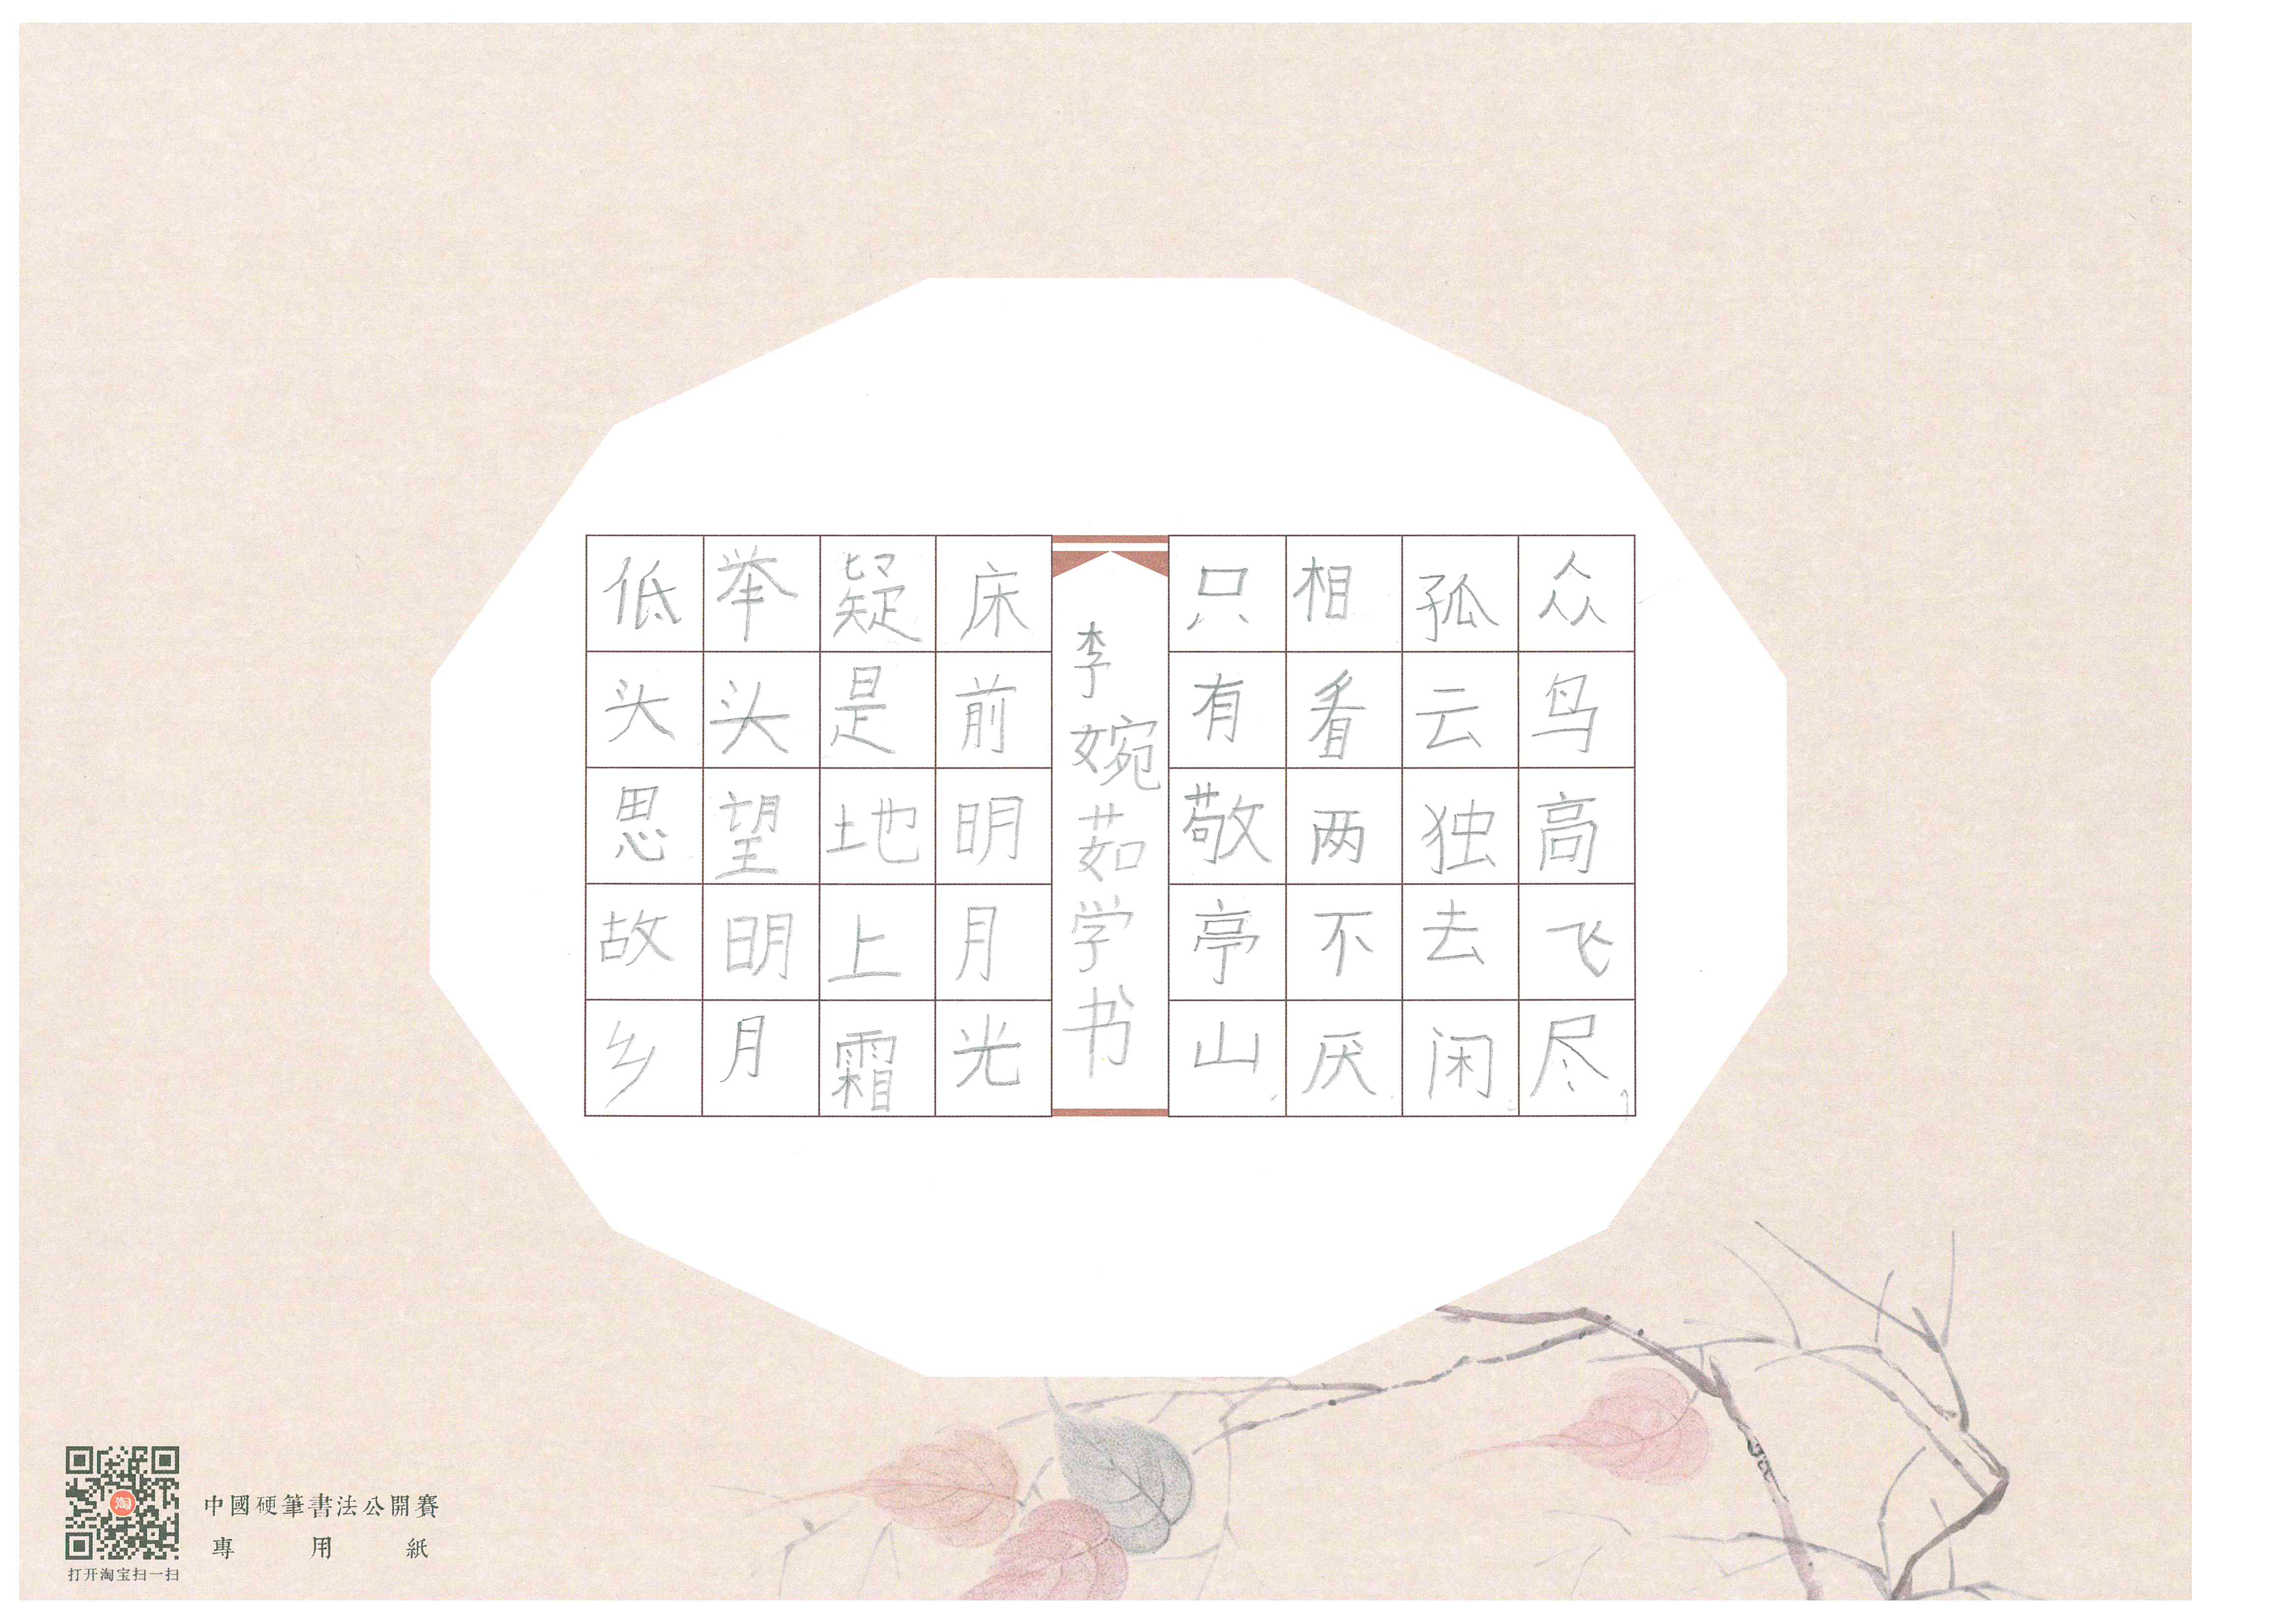 众鸟高飞尽
孤云独去闲
相看两不厌
只有敬亭山
李婉茹学书
床前明月光
疑是地上霜
举头望明月
低头思故乡
中國硬筆書法公開賽
專用紙
淘
打开淘宝扫一扫